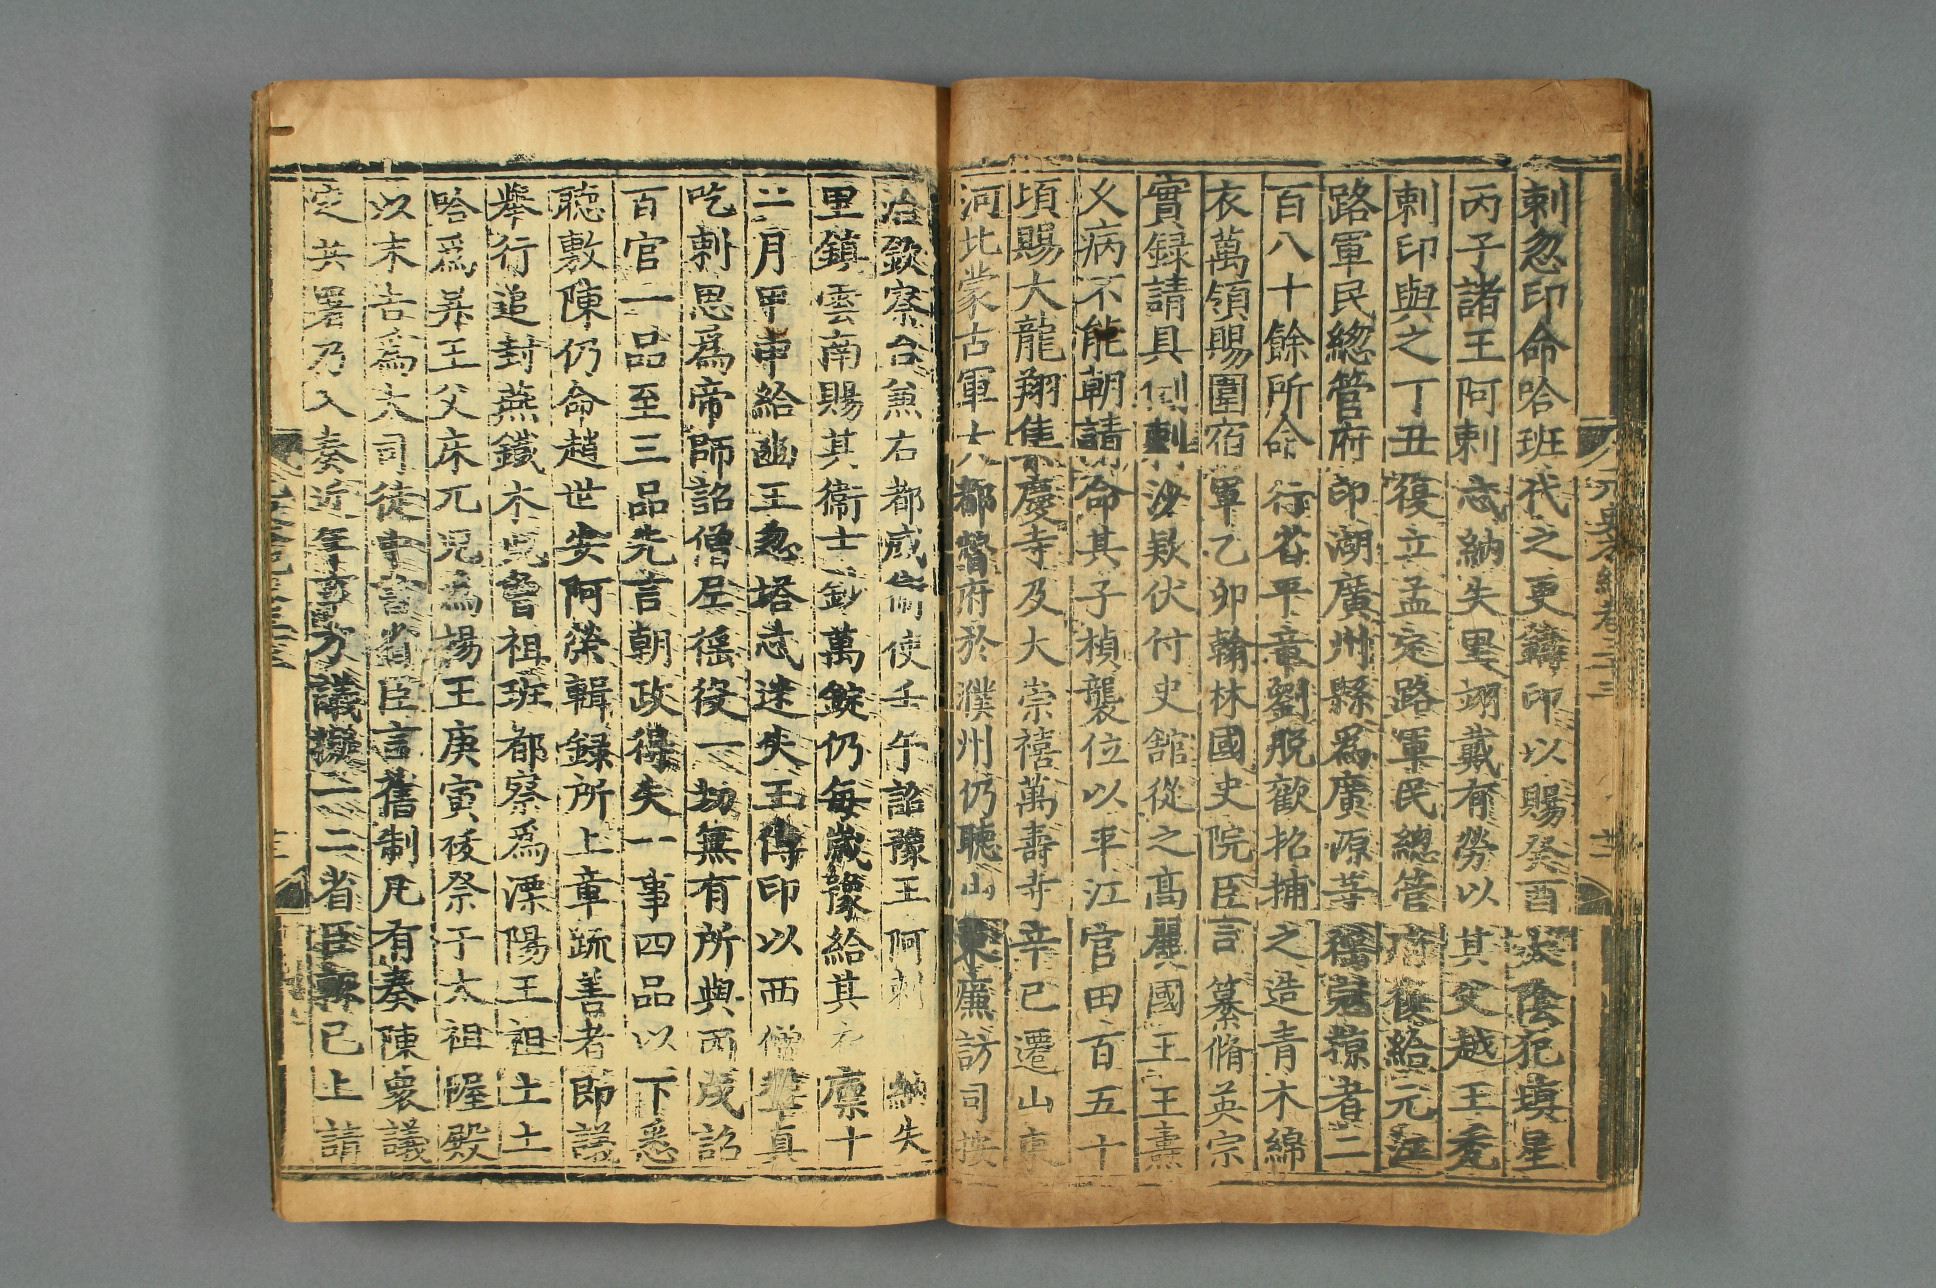 剌忽印命哈班代之更鑄印以賜癸酉太陰犯填星
丙子諸王阿剌忒納失里翊戴有勞以其父越王禿
剌印與之丁丑復立孟定路軍民總管府復給元江
路軍民總管府印湖廣州縣爲廣源等徭寇掠者二
百八十餘所命行省平章劉脫歡招捕之造青木綿
衣萬領賜圍宿軍乙卯翰林國史院臣言纂脩英宗
實録請具倒剌沙欵伏付史舘從之高麗國王王燾
乆病不能朝請命其子楨襲位以平江官田百五十
頃賜大龍翔集慶寺及大崇禧萬壽寺辛巳遷山東
河北蒙古軍大都督府於濮州仍聽山東廉訪司按
治欽察台兼右都威衛使壬午詔豫王阿剌 納失
里鎮雲南賜其衛士鈔萬錠仍每歲豫給其衣廪十
二月甲申給豳王忽塔忒迷失王傅印以西僧輦真
吃剌思爲帝師詔僧尼徭役一切無有所與丙戌詔
百官一品至三品先言朝政得失一事四品以下悉
聽敷陳仍命趙世安阿榮輯録所上章疏善者即議
舉行追封燕鐵木兒曾祖班都察爲溧陽王祖土土
哈爲昇王父床兀兒爲揚王庚寅祓祭于太祖幄殿
以末吉爲大司徒中書省臣言舊制凡有奏陳衆議
定共署乃入奏近年事方議擬一二省臣輒已上請
元史本紀卷三十三